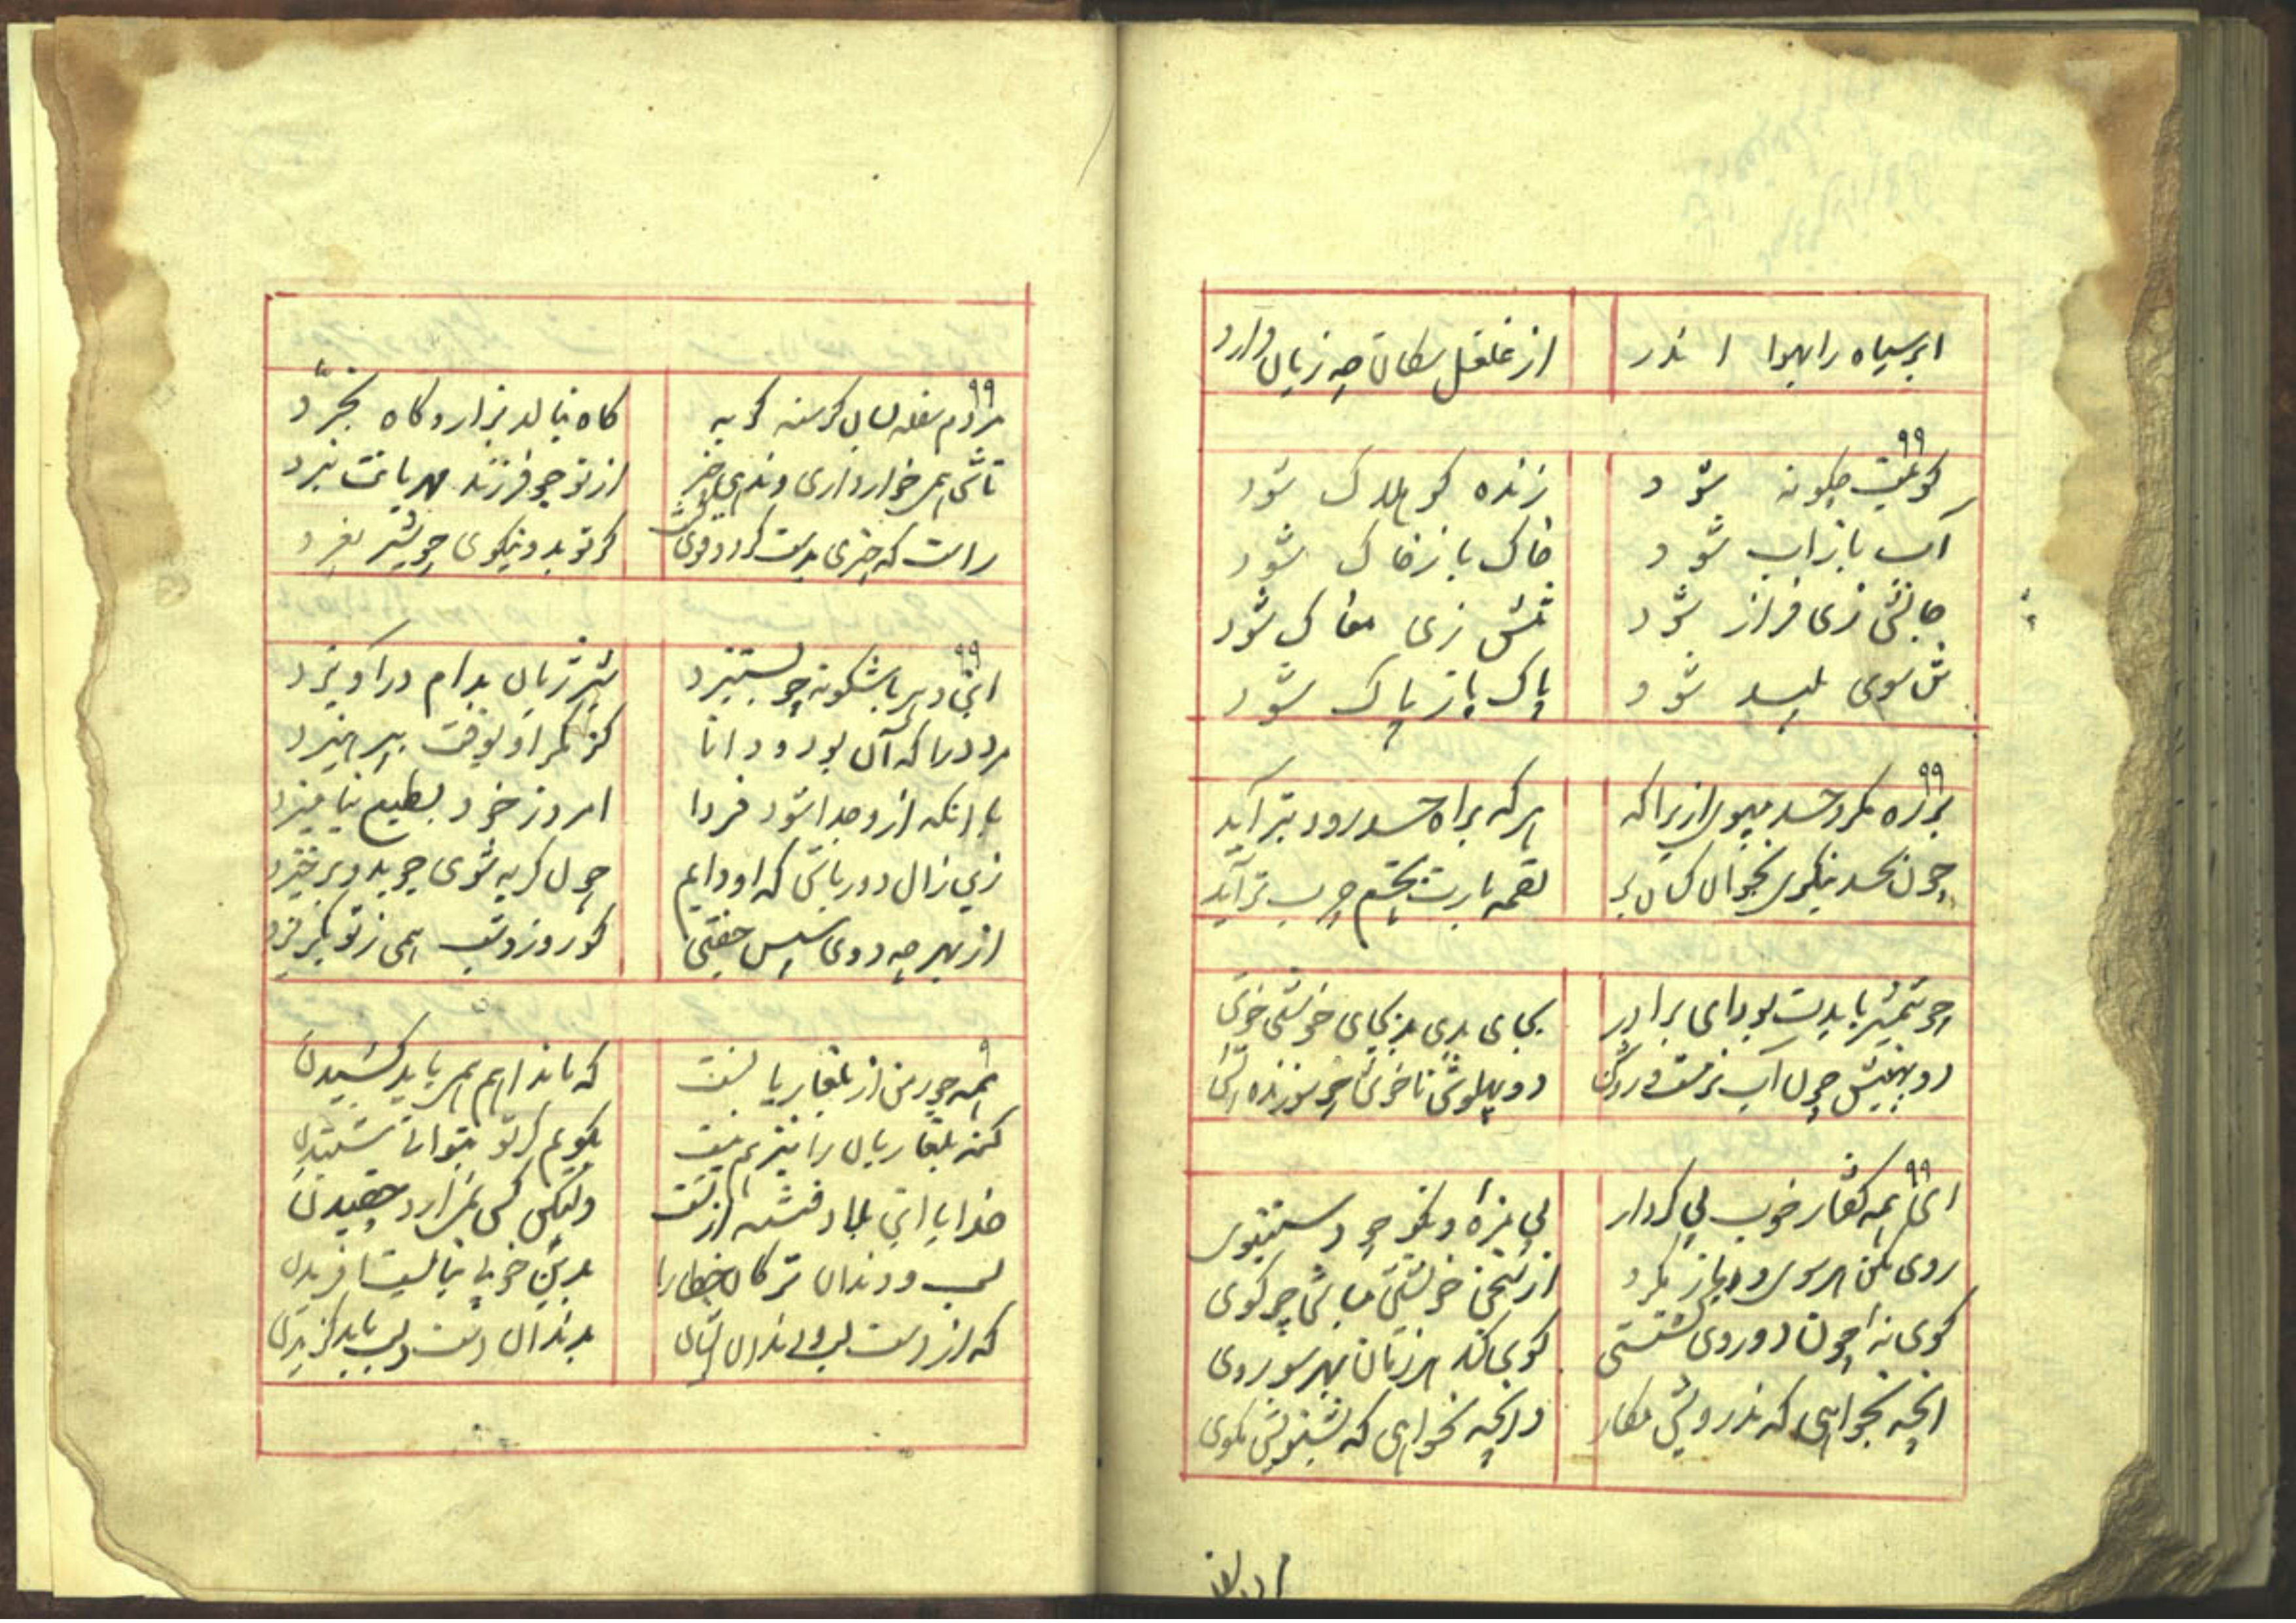 ابر سیاه را بهوا اندر از غلغل سکان چه زیان دارد
۹۹
کو بلیت چکونه شود زنده کو هلاک شود
آب باز آب شود خاک باز خاک شود
جانش زی فراز شود تنش زی مغاک شود
تن سوی پلید شود پاک باز پاک شود
۹۹
بر ره مکر و حسد مپوی ازیراکه هر که براه حسد رود بتر آید
چون بحسد بنکری بخوان کسان بر لقمه یارت بچشم چرب تر آید
چو تنبیر بایدت بود ای برادر بجای بدی بد بجای خوشی خوش
دو پهنیش چون آب نرمست و روشن دو پهلوش ناخوش چو سوزنده آتش
۹۹
ای همه کفتار خوب بی کردار بی مزه و نکو چو دستنبوی
روی مکن هر سوی و باز مکرد از سخن خویشتن مباش چو کوی
کوی نه چون دو روی کشتستی کوی کند هر زمان بهر سو روی
انچه بخواهی که ندرویش مکار وانچه نخواهی که نشنویش مکوی
۹۹
مردم سفله بسان کرسنه کربه کاه بنالد بزار و کاه بخرد
تاش همی خوار داری و ندهی چیز از تو چو فرزند مهربانت نبرد
راست که چیزی بدست کرد و قوی کشت کر تو بدو بنکری چو شیر بغرد
۹۹
این دهر باشکونه چو بستیزد شیر ژیان بدام در آویزد
مرد دریا که آن بود و دانا کز مکر او بوقت بپرهیزد
با انکه ازو جدا شود فردا امروز خود بطبع نیامیزد
زین زال دور باش که او دایم چون کربه شوی جوید و برخیزد
از بهر چه دوی سپس جفتی کو روز و شب همی ز تو بکریزد
۹
همه جور من از بلغاریانست که مادام همی باید کشیدن
کنه بلغاریان را نیز هم نیست بکویم کر تو بتوانی شنیدن
خدایا این بلا و فتنه از تست ولیکن کس نمیآرد چخیدن
لب و دندان ترکان خطا را بدین خوبی نبایست آفریدن
که از دست لب و دندان ایشان بدندان دست و لب باید کزیدن